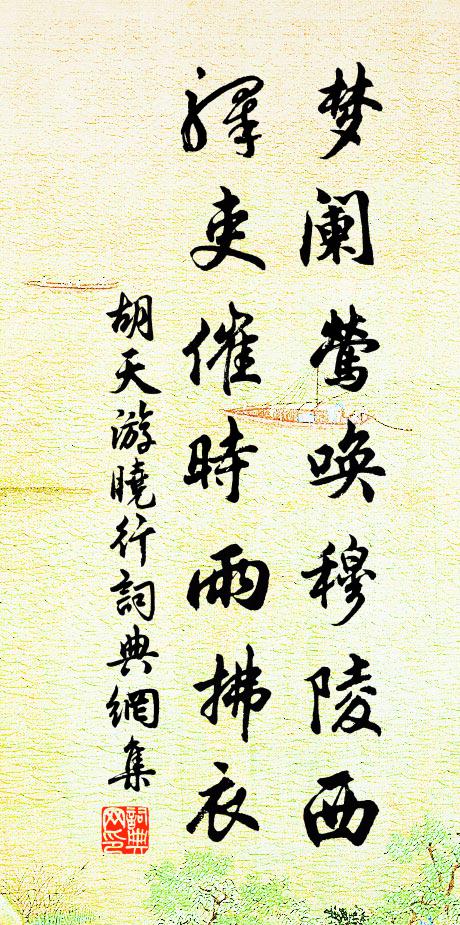 梦阑莺唤穆陵西
驛吏催時雨拂衣
胡天游曉行詞典網集
詞典网印